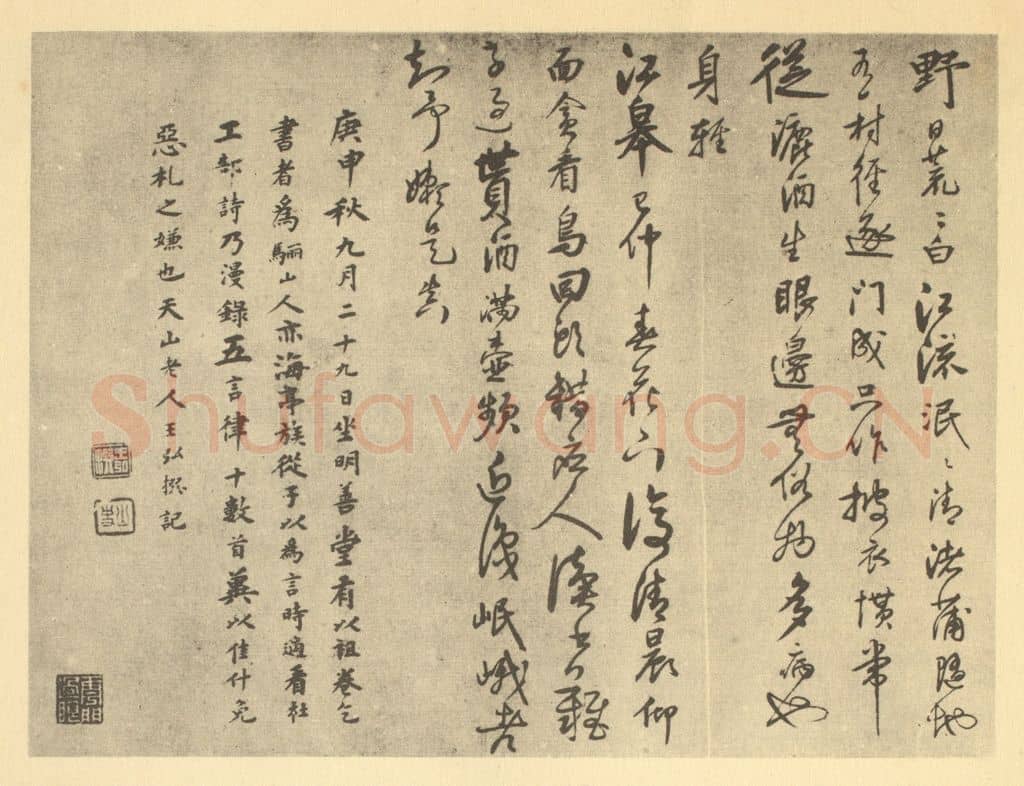 野日荒〻白江流泯〻清渚蒲隨地
有村徑逐门成只作披衣慣常
從漉酒生眼邊無俗物多病也
身輕
江皋已仲春花下復清晨仰
面貪看鳥回頭錯應人讀書難
字過貰酒滿壺頻近識岷峨老
知予嬾是真
庚申秋九月二十九日坐明善堂有以祖卷乞
書者為驪山人亦海亭族從子以為言時適看杜
工部詩乃漫錄五言律十數首冀以佳什免
惡札之嫌也天山老人王弘撰記
Shufawang.CN